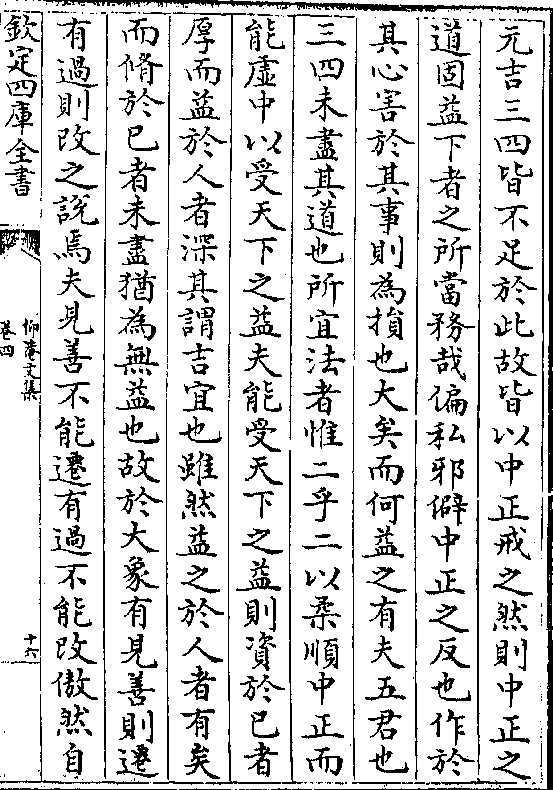 元吉三四皆不足於此故皆以中正戒之然則中正之
道固益下者之所當務哉偏私邪僻中正之反也作於
其心害於其事則為損也大矣而何益之有夫五君也
三四未盡其道也所宜法者惟二乎二以柔順中正而
能虛中以受天下之益夫能受天下之益則資於已者
厚而益於人者深其謂吉宜也雖然益之於人者有矣
而脩於已者未盡猶為無益也故於大象有見善則遷
有過則改之說焉夫見善不能遷有過不能改傲然自
欽定四庫全書
仰菴文集
卷四
十六